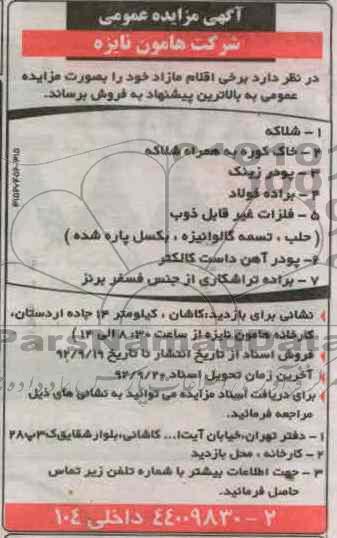 آگهی مزایده عمومی
شرکت هامون نایزه
در نظر دارد برخی اقلام مازاد خود را بصورت مزایده
عمومی به بالاترین پیشنهاد به فروش برساند.
۱- شلاکه
۲- خاک کوره به همراه شلاکه
۳- پودر زینک
۴- براده فولاد
۵- فلزات غیر قابل ذوب
( حلب ، تسمه گالوانیزه ، بکسل پاره شده )
۶- پودر آهن داست کالکتر
۷- براده تراشکاری از جنس فسفر برنز
نشانی برای بازدید:کاشان ، کیلومتر ۱۴ جاده اردستان،
کارخانه هامون نایزه از ساعت ۸:۳۰ الی ۱۴)
فروش اسناد از تاریخ انتشار تا تاریخ ۹۲/۹/۱۹
آخرین زمان تحویل اسناد ۹۲/۹/۲۰
برای دریافت اسناد مزایده می توانید به نشانی های ذیل
مراجعه فرمائید.
۱- دفتر تهران،خیابان آیت ا... کاشانی،بلوار شقایق،ک۳پ۲۸
۲- کارخانه ، محل بازدید
۳- جهت اطلاعات بیشتر با شماره تلفن زیر تماس
حاصل فرمائید.
۴۴۰۰۹۸۳۰-۲ داخلی ۱۰۴